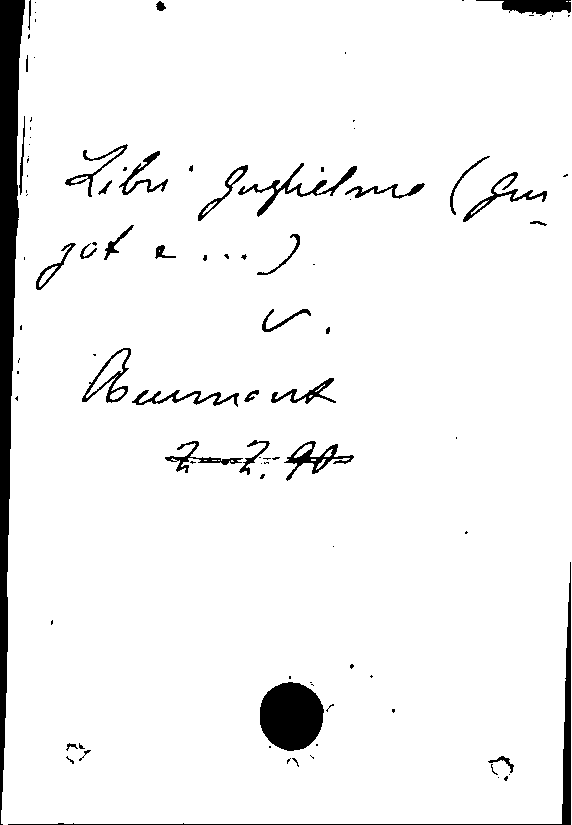 Libri Guglielmo (Gui-
zot e ...)
v.
Beumont
2.2.90